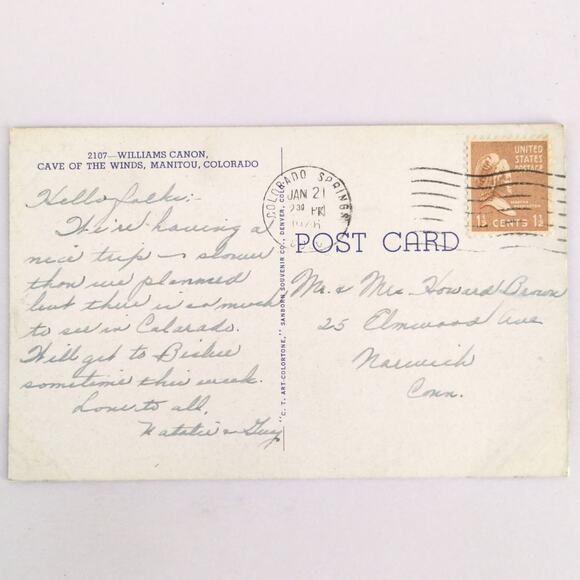 2107—WILLIAMS CANON,
CAVE OF THE WINDS, MANITOU, COLORADO
Hello folks:-
We're having a
nice trip - slower
than we planned
but there is so much
to see in Colorado.
Will get to Bisbee
sometime this week.
Love to all,
Natalie & Guy
"C. T. ART-COLORTONE," SANBORN SOUVENIR CO., DENVER, COLO.
COLORADO SPRINGS
JAN 21
2:30 PM
POST CARD
UNITED
STATES
POSTAGE
MARTHA
WASHINGTON
1½ CENTS 1½
Mr. & Mrs. Howard Brown
25 Elmwood Ave
Norwich
Conn.